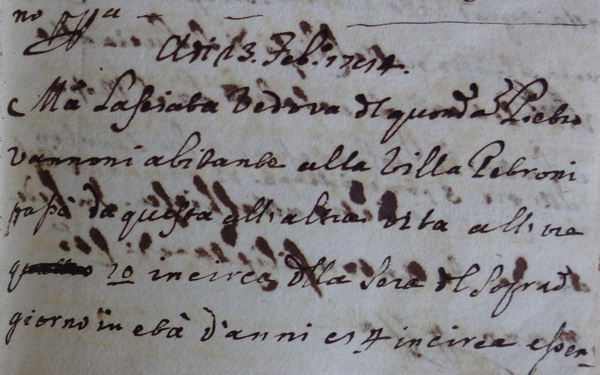 no
Adi 13. Feb.º 1714.
Mª Lasciata Vedova dl quondã Pietro
Vannoni abitante alla Villa Petroni
passò da questa all'altra vita all'ore
10 incirca dlla sera dl soprad
giorno in età d'anni 54 incirca essen